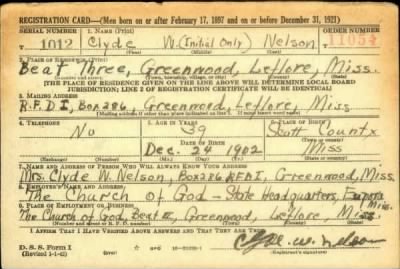 REGISTRATION CARD—(Men born on or after February 17, 1897 and on or before December 31, 1921)
SERIAL NUMBER 1. NAME (Print) ORDER NUMBER
1012 Clyde W.(Initial Only) Nelson 11054
(First) (Middle) (Last)
2. PLACE OF RESIDENCE (Print)
Beat Three, Greenwood, Leflore, Miss.
(Number and street) (Town, township, village, or city) (County) (State)
[THE PLACE OF RESIDENCE GIVEN ON THE LINE ABOVE WILL DETERMINE LOCAL BOARD
JURISDICTION; LINE 2 OF REGISTRATION CERTIFICATE WILL BE IDENTICAL]
3. MAILING ADDRESS
R.F.D I, Box 286, Greenwood, Leflore, Miss
[Mailing address if other than place indicated on line 2. If same insert word same]
4. TELEPHONE 5. AGE IN YEARS 6. PLACE OF BIRTH
No 39 Scott County
DATE OF BIRTH
Dec. 24 1902 Miss
(Exchange) (Number) (Mo.) (Day) (Yr.) (State or country)
7. NAME AND ADDRESS OF PERSON WHO WILL ALWAYS KNOW YOUR ADDRESS
Mrs. Clyde W. Nelson, Box 286 RFD I, Greenwood, Miss.
8. EMPLOYER'S NAME AND ADDRESS
The Church of God - State Headquarters, Miss.
9. PLACE OF EMPLOYMENT OR BUSINESS
The Church of God, Beat III, Greenwood, Leflore, Miss.
(Number and street or R. F. D. number) (Town) (County) (State)
I AFFIRM THAT I HAVE VERIFIED ABOVE ANSWERS AND THAT THEY ARE TRUE.
D. S. S. Form 1
(Revised 1-1-42) (over)
Clyde W. Nelson